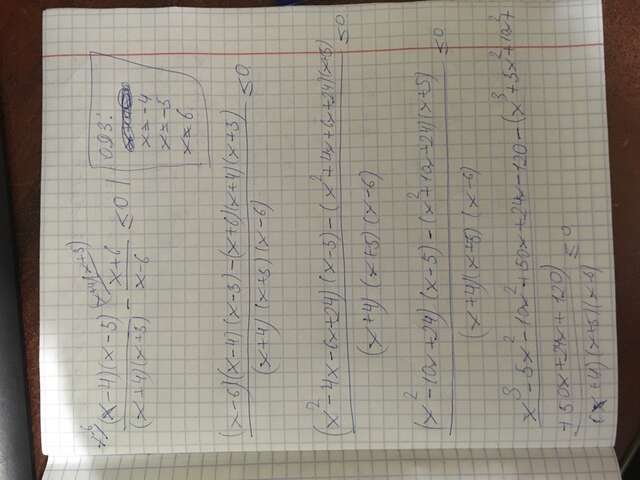 x-6 (x+4)(x+5)
(x-4)(x-5)/(x+4)(x+5) - x+6/x-6 ≤ 0 |
ОДЗ:
x ≠ -4
x ≠ -5
x ≠ 6
(x-6)(x-4)(x-5)-(x+6)(x+4)(x+5)/(x+4)(x+5)(x-6) ≤ 0
(x²-4x-6x+24)(x-5)-(x²+4x+6x+24)(x+5)/(x+4)(x+5)(x-6) ≤ 0
(x²-10x+24)(x-5)-(x²+10x+24)(x+5)/(x+4)(x+5)(x-6) ≤ 0
x³-5x²-10x²+50x+24x-120-(x³+5x²+10x²+
+50x+24x+120)/(x+4)(x+5)(x-6) ≤ 0